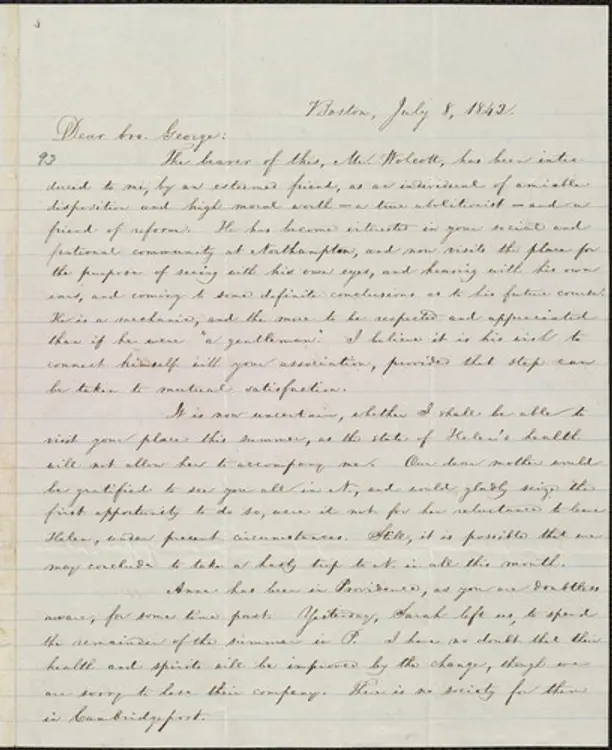 Boston, July 8, 1842.
Dear bro. George:
93
The bearer of this, Mr. Wolcott, has been intro-
duced to me, by an esteemed friend, as an individual of amiable
disposition and high moral worth — a true abolitionist — and a
friend of reform. He has become interested in your social and
fraternal community at Northampton, and now visits the place for
the purpose of seeing with his own eyes, and hearing with his own
ears, and coming to some definite conclusions as to his future course.
He is a mechanic, and the more to be respected and appreciated
than if he were "a gentleman." I believe it is his wish to
connect himself with your association, provided that step can
be taken to mutual satisfaction.
It is now uncertain, whether I shall be able to
visit your place this summer, as the state of Helen's health
will not allow her to accompany me. Our dear mother would
be gratified to see you all in N., and would gladly seize the
first opportunity to do so, were it not for her reluctance to leave
Helen, under present circumstances. Still, it is possible that we
may conclude to take a hasty trip to N. in all this month.
Anne has been in Providence, as you are doubtless
aware, for some time past. Yesterday, Sarah left us, to spend
the remainder of the summer in P. I have no doubt that their
health and spirits will be improved by the change, though we
are sorry to lose their company. There is no society for them
in Cambridgeport.